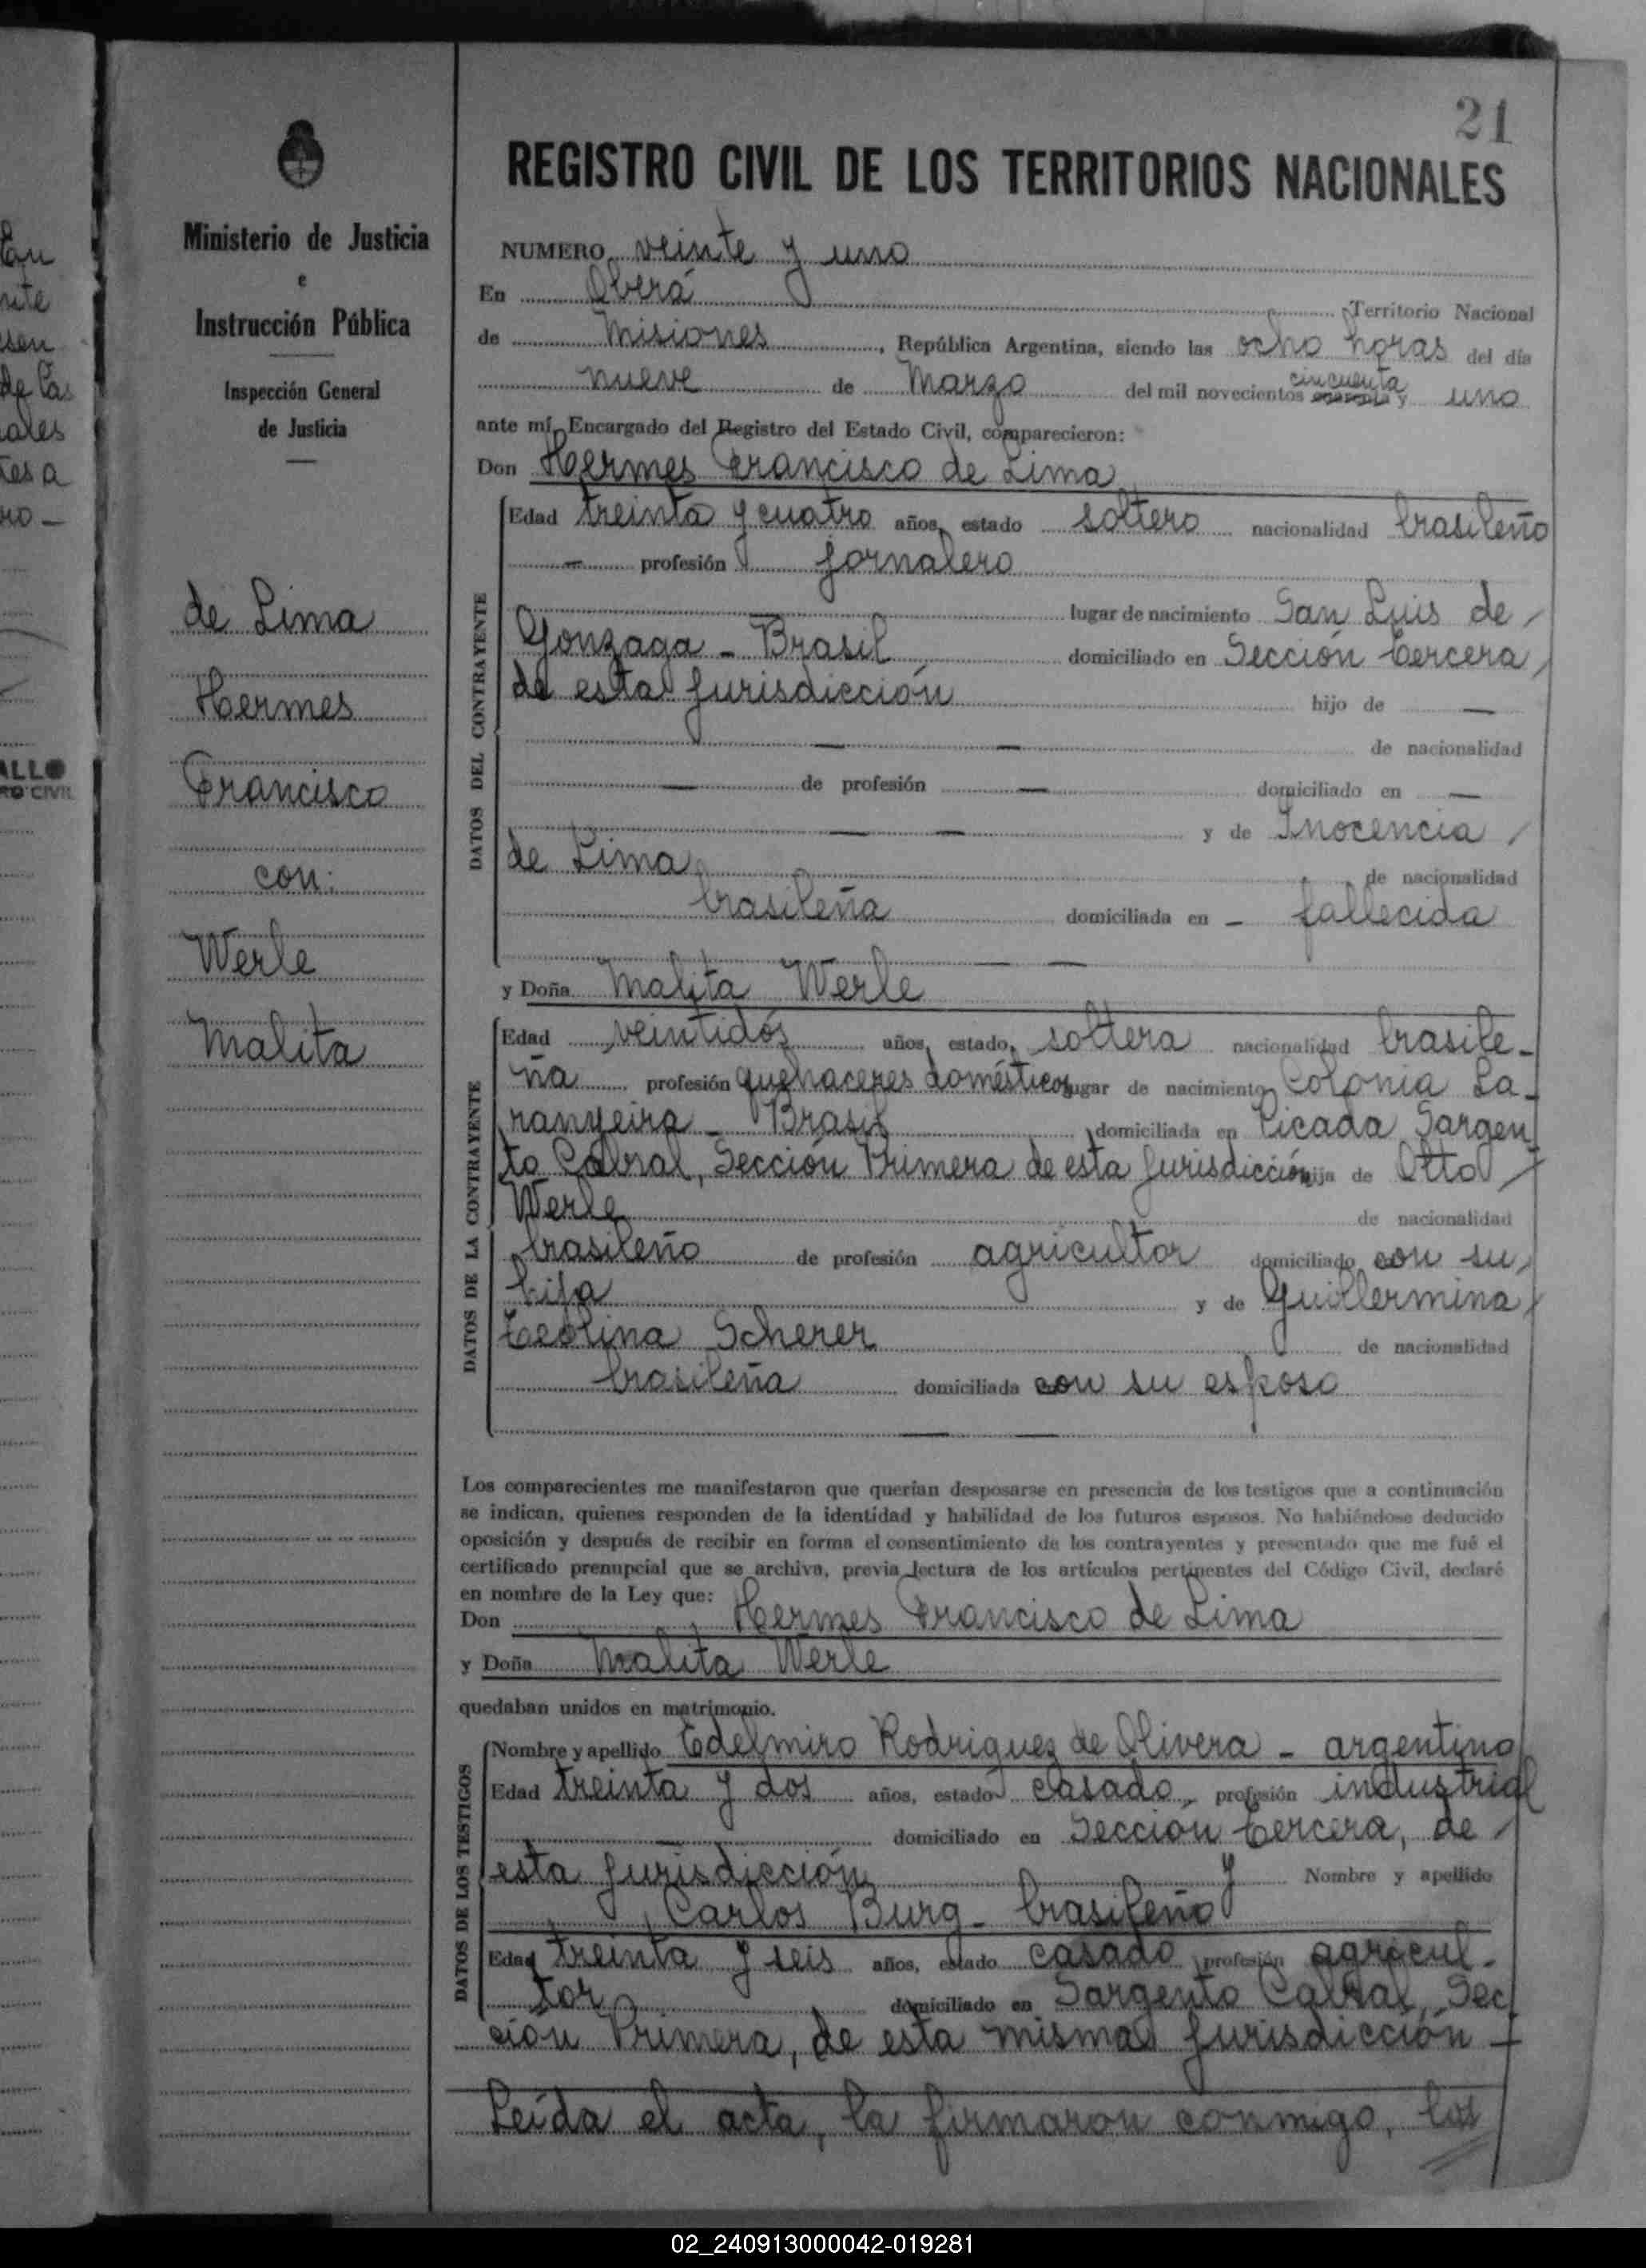 21
REGISTRO CIVIL DE LOS TERRITORIOS NACIONALES
Ministerio de Justicia
e
Instrucción Pública
Inspección General
de Justicia
de Lima
Hermes
Francisco
con:
Werle
Malita
NUMERO veinte y uno
En Oberá Territorio Nacional
de Misiones, República Argentina, siendo las ocho horas del día
nueve de Marzo del mil novecientos cincuenta y uno
ante mí, Encargado del Registro del Estado Civil, comparecieron:
Don Hermes Francisco de Lima
DATOS DEL CONTRAYENTE
Edad treinta y cuatro años, estado soltero nacionalidad brasileño
— profesión jornalero
lugar de nacimiento San Luis de
Gonzaga - Brasil domiciliado en Sección tercera
de esta jurisdicción hijo de —
— — de nacionalidad
— de profesión — domiciliado en —
— — y de Inocencia
de Lima de nacionalidad
brasileña domiciliada en - fallecida
— —
y Doña Malita Werle
DATOS DE LA CONTRAYENTE
Edad veintidós años, estado, soltera nacionalidad brasile-
ña profesión quehaceres domésticos lugar de nacimiento Colonia La-
ranyeira - Brasil domiciliada en Picada Sargen
to Cabral, Sección Primera de esta jurisdicción hija de Otto
Werle de nacionalidad
brasileño de profesión agricultor domiciliado con su
hija y de Guillermina
Teolina Scherer de nacionalidad
brasileña domiciliada con su esposo
— —
Los comparecientes me manifestaron que querían desposarse en presencia de los testigos que a continuación
se indican, quienes responden de la identidad y habilidad de los futuros esposos. No habiéndose deducido
oposición y después de recibir en forma el consentimiento de los contrayentes y presentado que me fué el
certificado prenupcial que se archiva, previa lectura de los artículos pertinentes del Código Civil, declaré
en nombre de la Ley que:
Don Hermes Francisco de Lima
y Doña Malita Werle
quedaban unidos en matrimonio.
DATOS DE LOS TESTIGOS
Nombre y apellido Edelmiro Rodriguez de Olivera - argentino
Edad treinta y dos años, estado casado, profesión industrial
domiciliado en Sección tercera, de
esta jurisdicción y Nombre y apellido
Carlos Burg - brasileño
Edad treinta y seis años, estado casado profesión agricul-
tor domiciliado en Sargento Cabral, Sec
ción Primera, de esta misma jurisdicción
Leída el acta, la firmaron conmigo, los
02_240913000042-019281